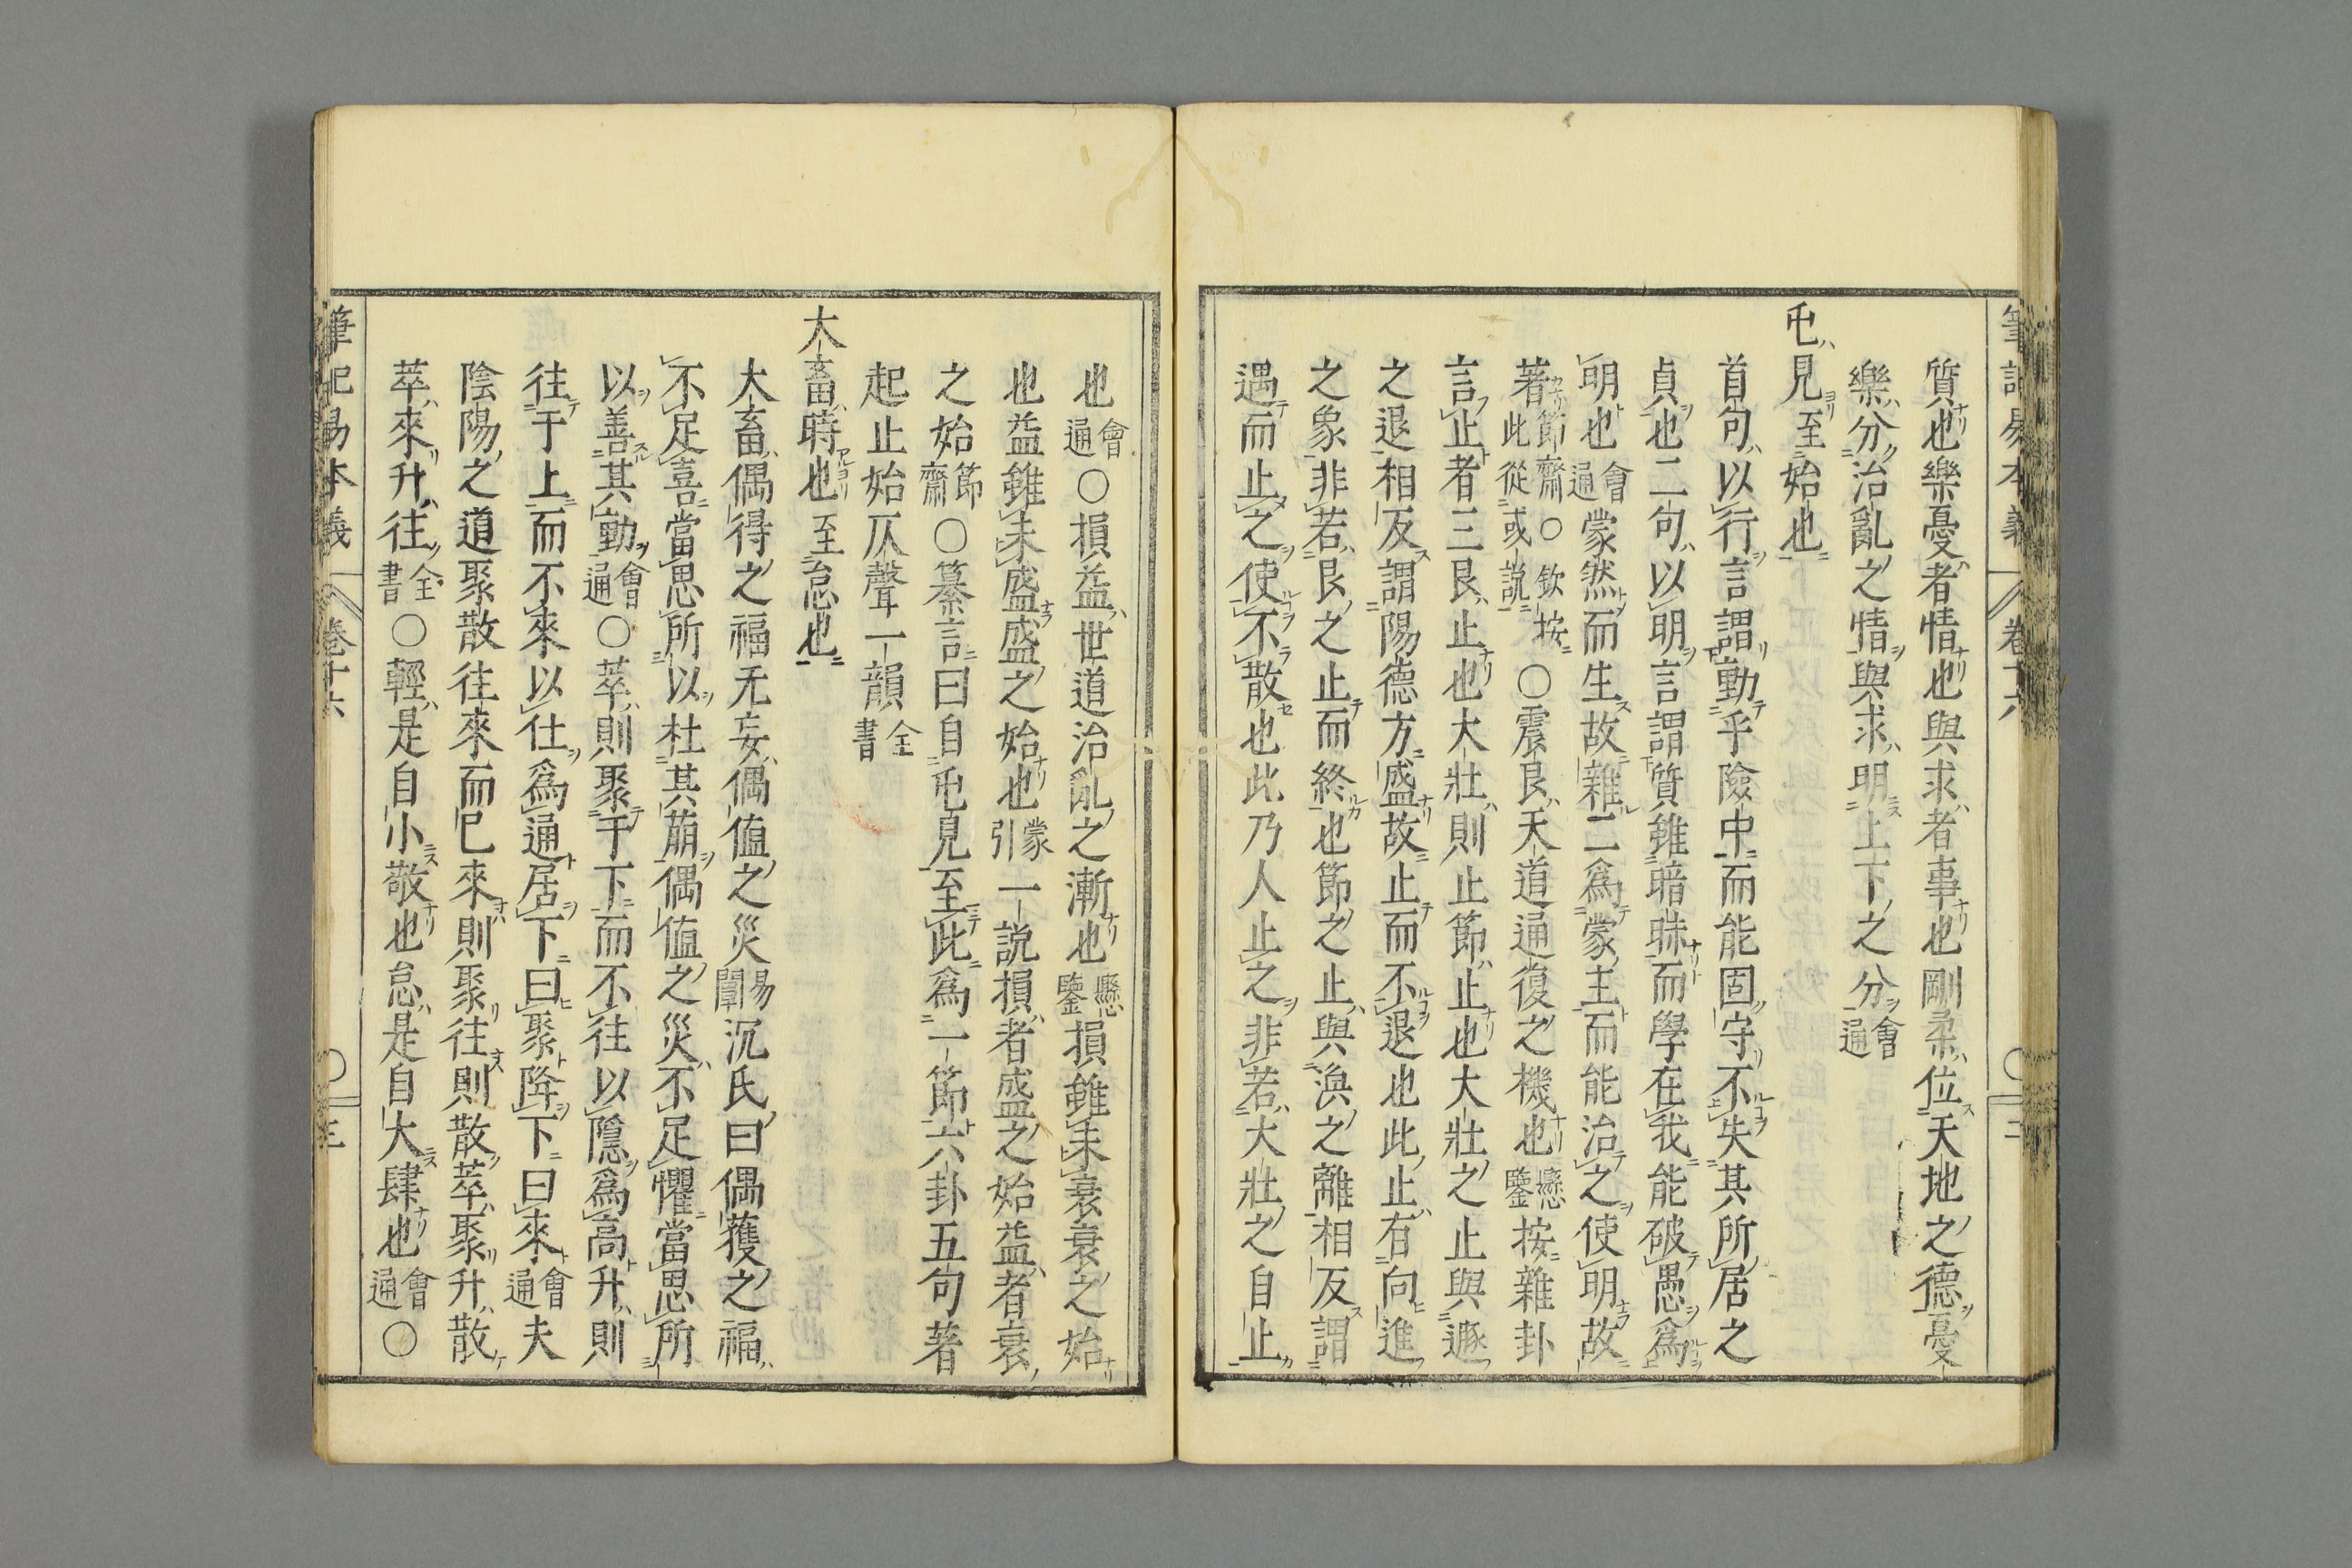 筆記易本義 卷十六 〇 二
質也樂憂者情也與求者事也剛柔位天地之德憂
樂分治亂之情與求明上下之分會通
屯見至始也
首句以行言謂動乎險中而能固守不失其所居之
貞也二句以明言謂質雖暗昧而學在我能破愚爲
明也會通蒙然而生故雜二爲蒙主而能治之使明故
著節齋〇欽按此從或説〇震艮天道通復之機也懸鑒按雜卦
言止者三艮止也大壯則止節止也大壯之止與遯
之退相反謂陽德方盛故止而不退也此止有向進
之象非若艮之止而終也節之止與渙之離相反謂
遇而止之使不散也此乃人止之非若大壯之自止
也會通〇損益世道治亂之漸也懸鑒損雖未衰衰之始
也益雖未盛盛之始也蒙引一説損者盛之始益者衰
之始節齋〇纂言曰自屯見至此爲一節六卦五句著
起止始仄聲一韻全書
大畜時也至怠也
大畜偶得之福无妄偶値之災易闡沉氏曰偶獲之福
不足喜當思所以杜其萠偶値之災不足懼當思所
以善其動會通〇萃則聚于下而不往以隱爲高升則
往于上而不來以仕爲通居下曰聚降下曰來會通夫
陰陽之道聚散往來而已來則聚往則散萃聚升散
萃來升往全書〇輕是自小敬也怠是自大肆也會通〇
筆記易本義 卷十六 〇 三